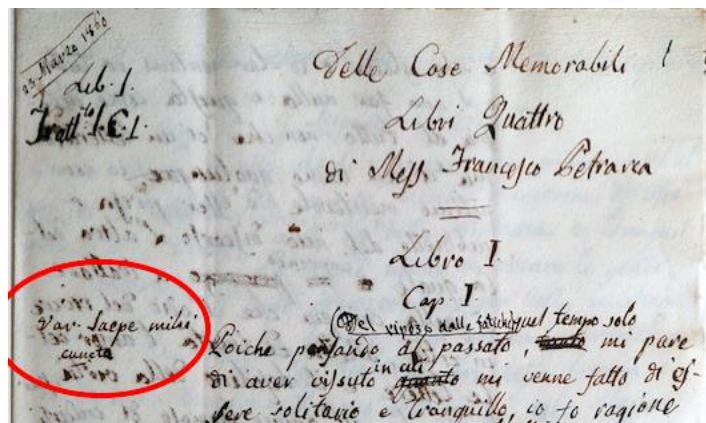 23 Marzo 1860
Lib. I.
Tratt.to I. C. I.
Delle Cose Memorabili 1
Libri Quattro
di Mess. Francesco Petrarca
Libro I
Cap. I
Var. Saepe mihi
cuncta
(Del riposo dalle fatiche) quel tempo solo
Poichè pensando al passato, tanto mi pare
in cui
di aver vissuto quanto mi venne fatto di es-
sere solitario e tranquillo, io fo ragione